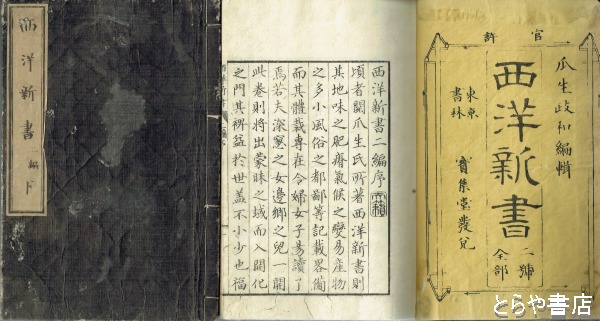 西洋新書 編 下
西洋新書二編序
頃者閲瓜生氏所著西洋新書則
其地味之肥瘠氣候之變易産物
之多小風俗之都鄙等記載畧備
而其體裁專在令婦女子易讀了
焉若夫深窓之女邊鄉之兒一閲
此卷則將出蒙昧之域而入開化
之門其裨益於世盖不小少也福
官許
瓜生政和編輯
西洋新書 二號 全部
東京書林
寳集堂發兌
とらや書店